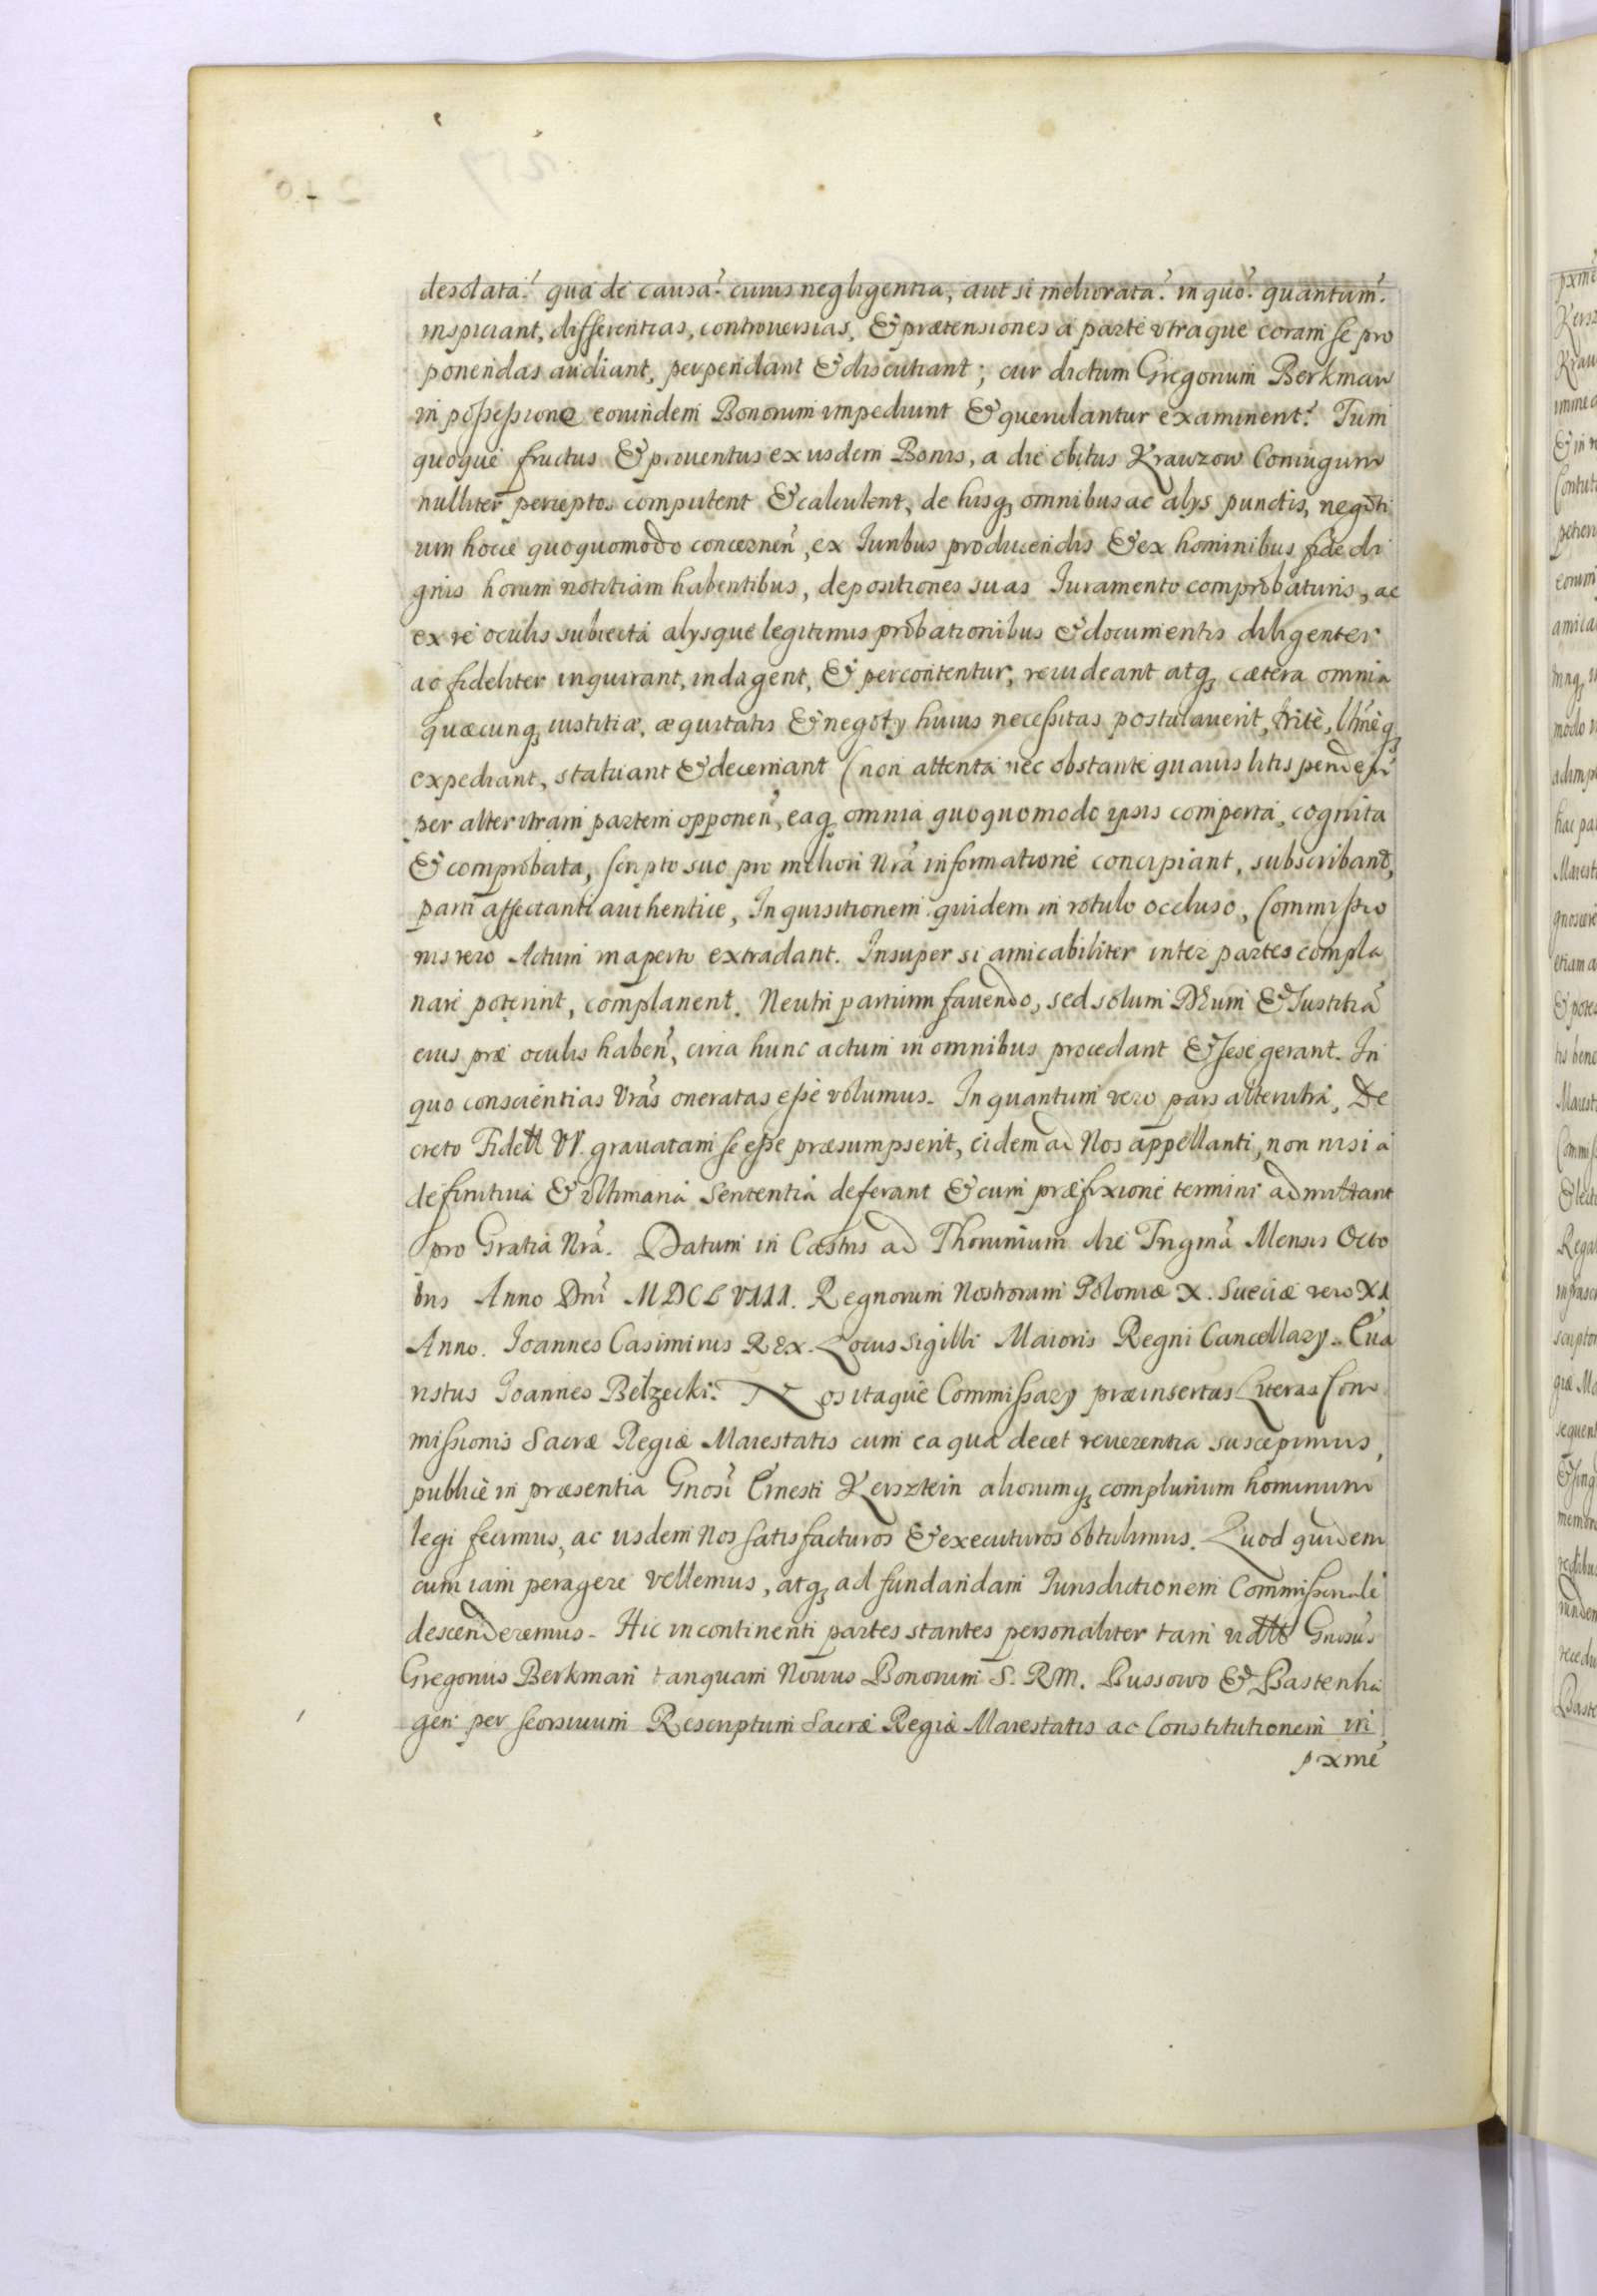 desolata? qua de causa? cuius negligentia, aut si meliorata? in quo? quantum?
inspiciant, differentias, controuersias, & prætensiones a parte vtraque coram se pro
ponendas audiant, perpendant & discutiant; cur dictum Gregorium Berkman
in possessione eorundem Bonorum impediunt & querulantur examinent? Tum
quoque fructus & prouentus ex iisdem Bonis, a die obitus Krawzow Coniugum
nulliter perceptos computent & calculent, de hisq3 omnibus ac alys punctis, negoti
um hocce quoquomodo concernen̄, ex Iuribus producendis & ex hominibus fide di
gnis horum notitiam habentibus, depositiones suas Iuramento comprobaturis, ac
ex re oculis subiecta alysque legitimis probationibus & documentis diligenter
ac fideliter inquirant, indagent, & percontentur, reuideant atq3 cætera omnia
quæcunq3 iustitiæ, æquitatis & negoty huius necessitas postulauerit, rite, ltimeq3
expediant, statuant & decernant (non attenta nec obstante quauis litis penden̄
per alterutram partem opponen̄, eaq3 omnia quoquomodo ipsis comperta, cognita
& comprobata, scripto suo pro meliori Nrā informatione concipiant, subscribant,
parti affectanti authentice, Inquisitionem quidem in rotulo occluso, Commissio
nis vero Actum in aperto extradant. Insuper si amicabiliter inter partes compla
nare poterint, complanent. Neutri partium fauendo, sed solum Deum & Iustitiā
eius præ oculis haben̄, circa hunc actum in omnibus procedant & sese gerant. In
quo conscientias Vrās oneratas esse volumus. In quantum vero pars alterutra, De
creto Fidett VV. grauatam se esse præsumpserit, eidem ad Nos appellanti, non nisi a
definitiua & vltimaria sententia deferant & cum præfixione termini admittant
pro Gratia Nrā. Datum in Castris ad Thorunium die Trigmā Mensis Octo
bris Anno Dni MDCLVIII. Regnorum Nostrorum Poloniæ X. Sueciæ vero XI
Anno. Joannes Casimirus Rex. Locus Sigilli Maioris Regni Cancellary. Eua
ristus Joannes Belzecki. Nos itaque Commissary præinsertas Literas Com
missionis Sacræ Regiæ Maiestatis cum ea qua decet reuerentia suscepimus,
publice in præsentia Gnosi Ernesti Keisztein aliorumq3 complurium hominum
legi fecimus, ac iisdem Nos satisfacturos & executuros obtulimus. Quod quidem
cum iam peragere vellemus, atq3 ad fundandam Iurisdictionem Commissorialē
descenderemus. Hic incontinenti partes stantes personaliter tam vidtt Gnosus
Gregorius Berkman tanquam Nouus Bonorum S. RM. Bussowo & Bastenha
gen per seorsiuum Rescriptum Sacræ Regiæ Maiestatis ac Constitutionem in
pxme